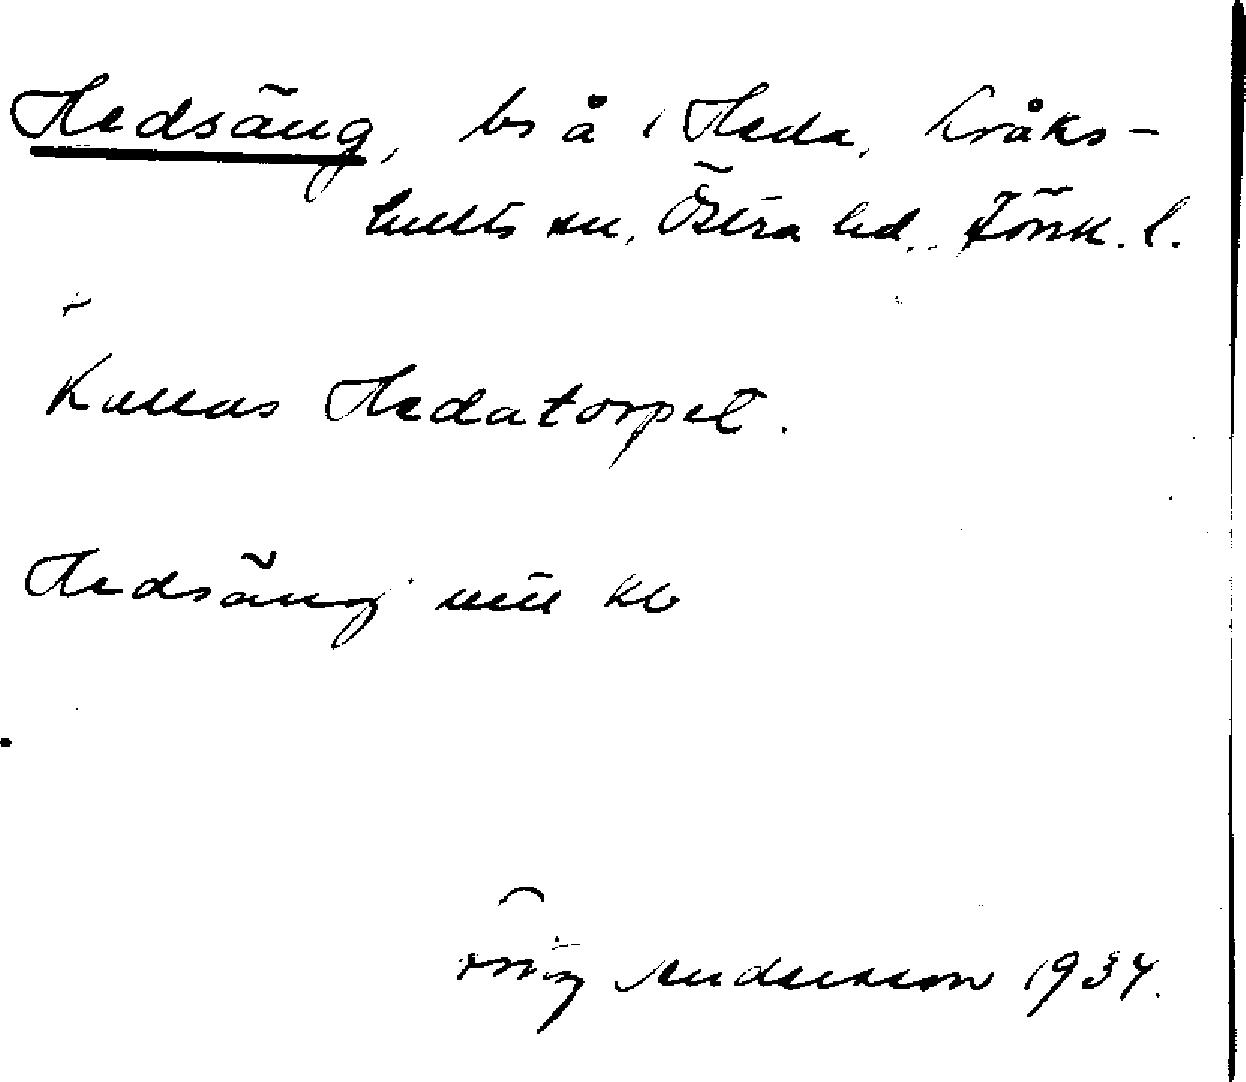 Hedsäng, bs å i Heda, Kråks-
hults sn, Östra hd., Jönk. l.
Kallas Hedatorpet.
Hedsäng
Anderson 1934.